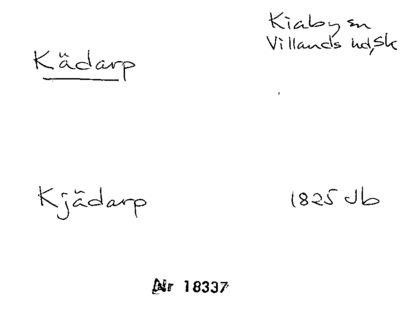 Kädarp
Kiaby sn
Villands hd, Sk
Kjädarp
1825 Jb
Nr 18337